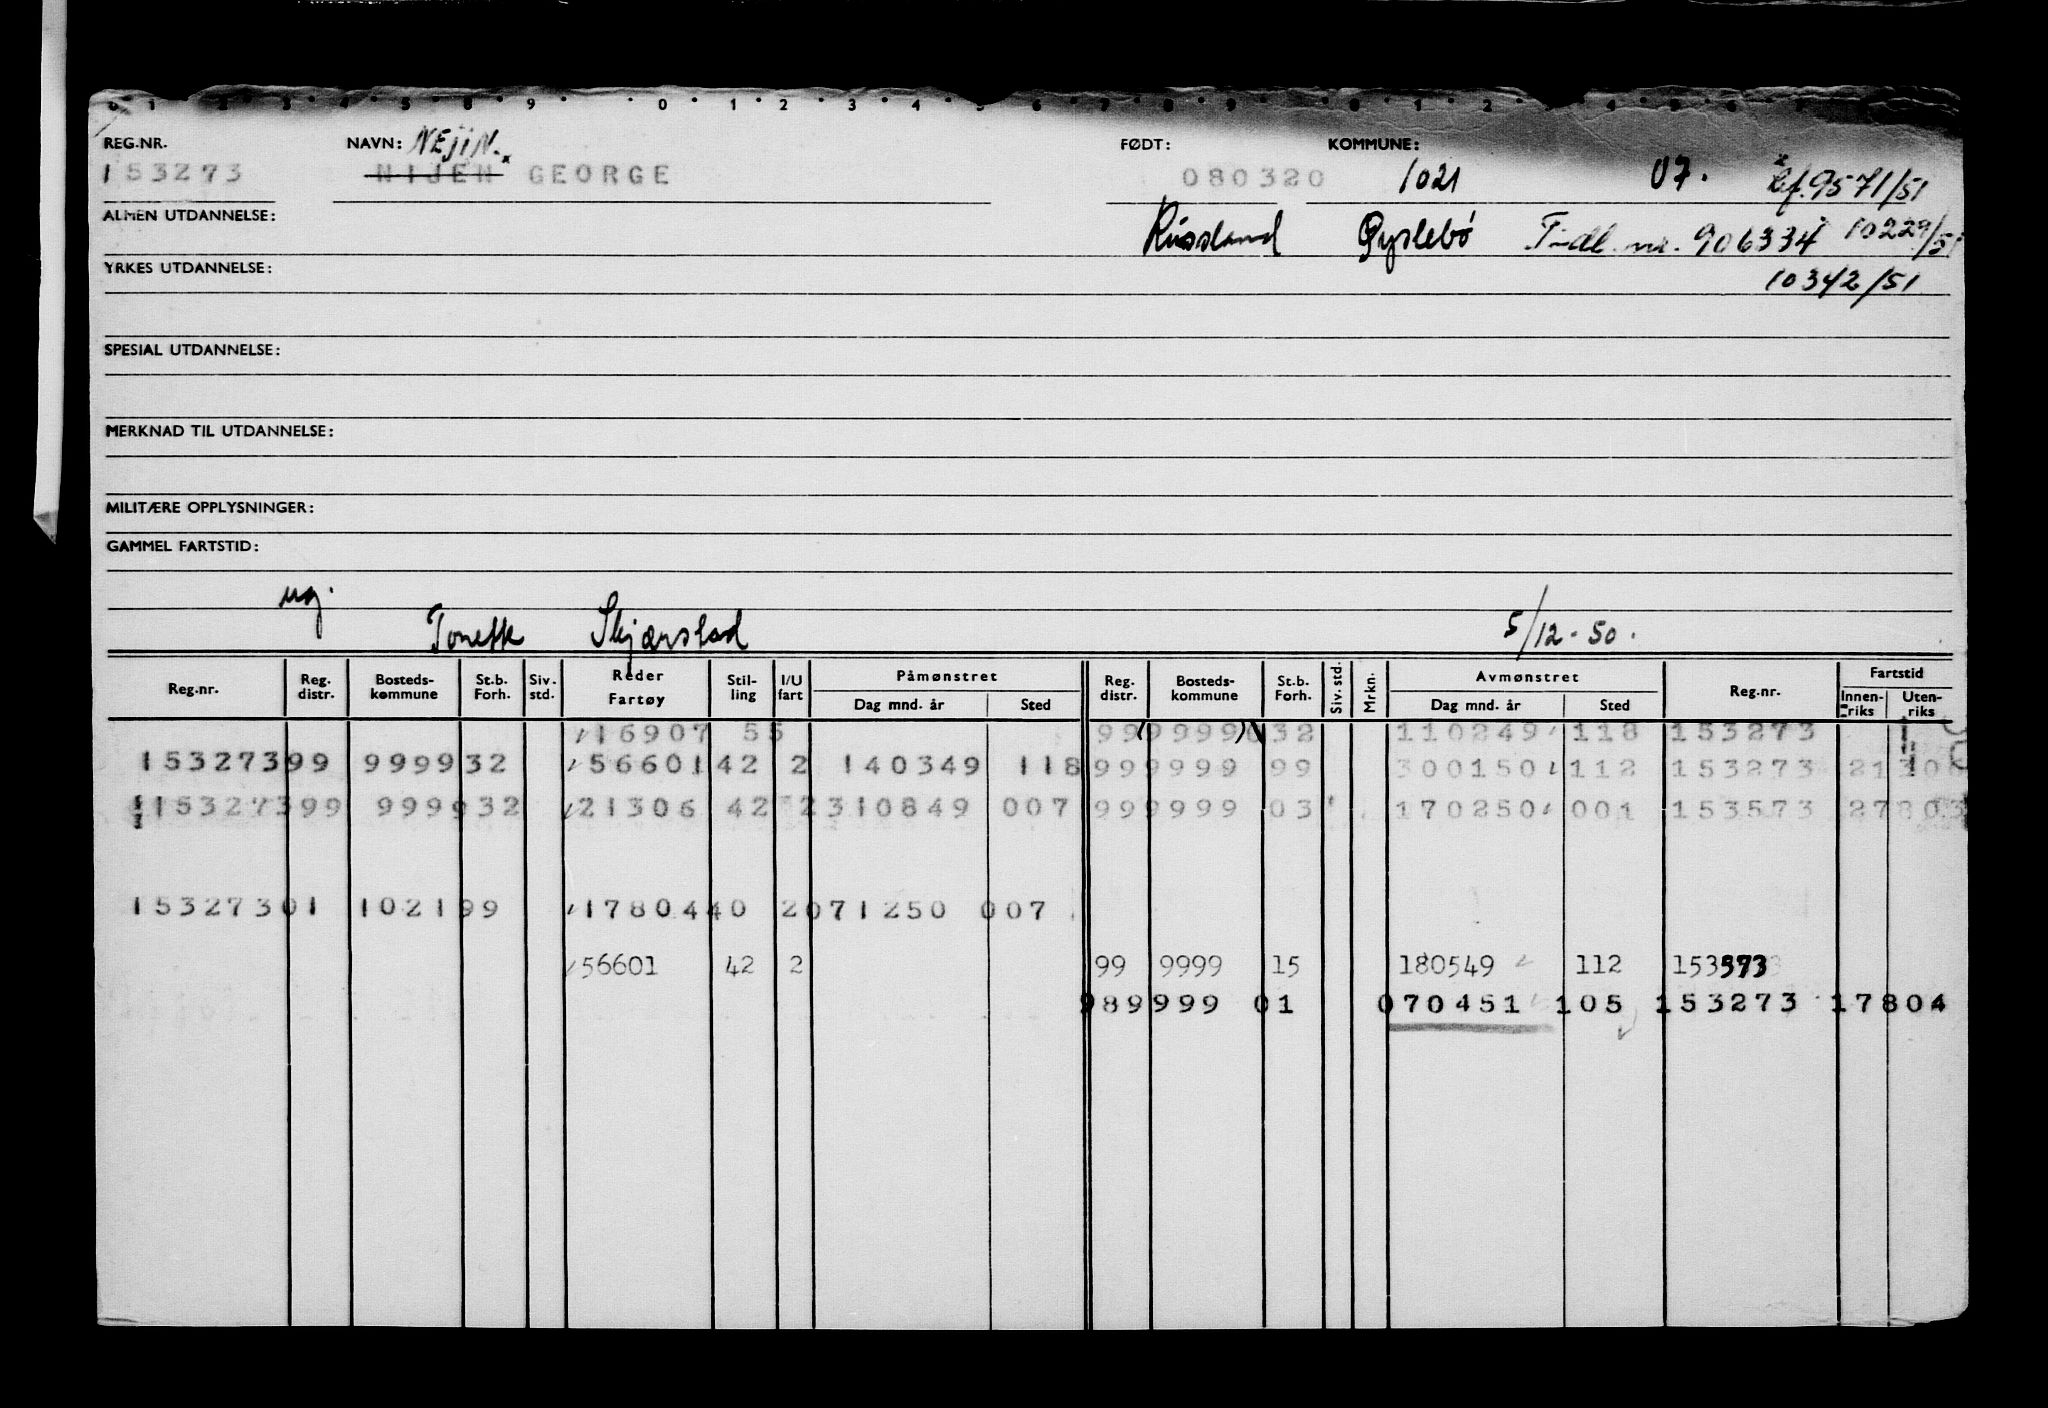 REG.NR. NAVN: NEJIN. FØDT: KOMMUNE:
153273 NIJEN GEORGE 080320 1021 07. 9571/51
ALMEN UTDANNELSE: Russland Øyslebö nr. 906334 10229/51
YRKES UTDANNELSE: 10342/51
SPESIAL UTDANNELSE:
MERKNAD TIL UTDANNELSE:
MILITÆRE OPPLYSNINGER:
GAMMEL FARTSTID:
ug.
Skjærstad 5/12-50.
Reg.nr. Reg. distr. Bosteds-kommune St.b. Forh. Siv. std. Reder Fartøy Stil-ling I/U fart Påmønstret Dag mnd. år Sted Reg. distr. Bosteds-kommune St.b. Forh. Siv. std. Mrkn. Avmønstret Dag mnd. år Sted Reg.nr. Fartstid Innen-riks Uten-riks
16907 55 99 (9999) 32 110249 118 153273
153273 99 9999 32 56601 42 2 140349 118 99 9999 99 300150 112 153273 21306
153273 99 9999 32 21306 42 2 310849 007 99 9999 03 170250 001 153573 27803
153273 01 1021 99 17804 40 2 071250 007
56601 42 2 99 9999 15 180549 112 153573
98 9999 01 070451 105 153273 17804